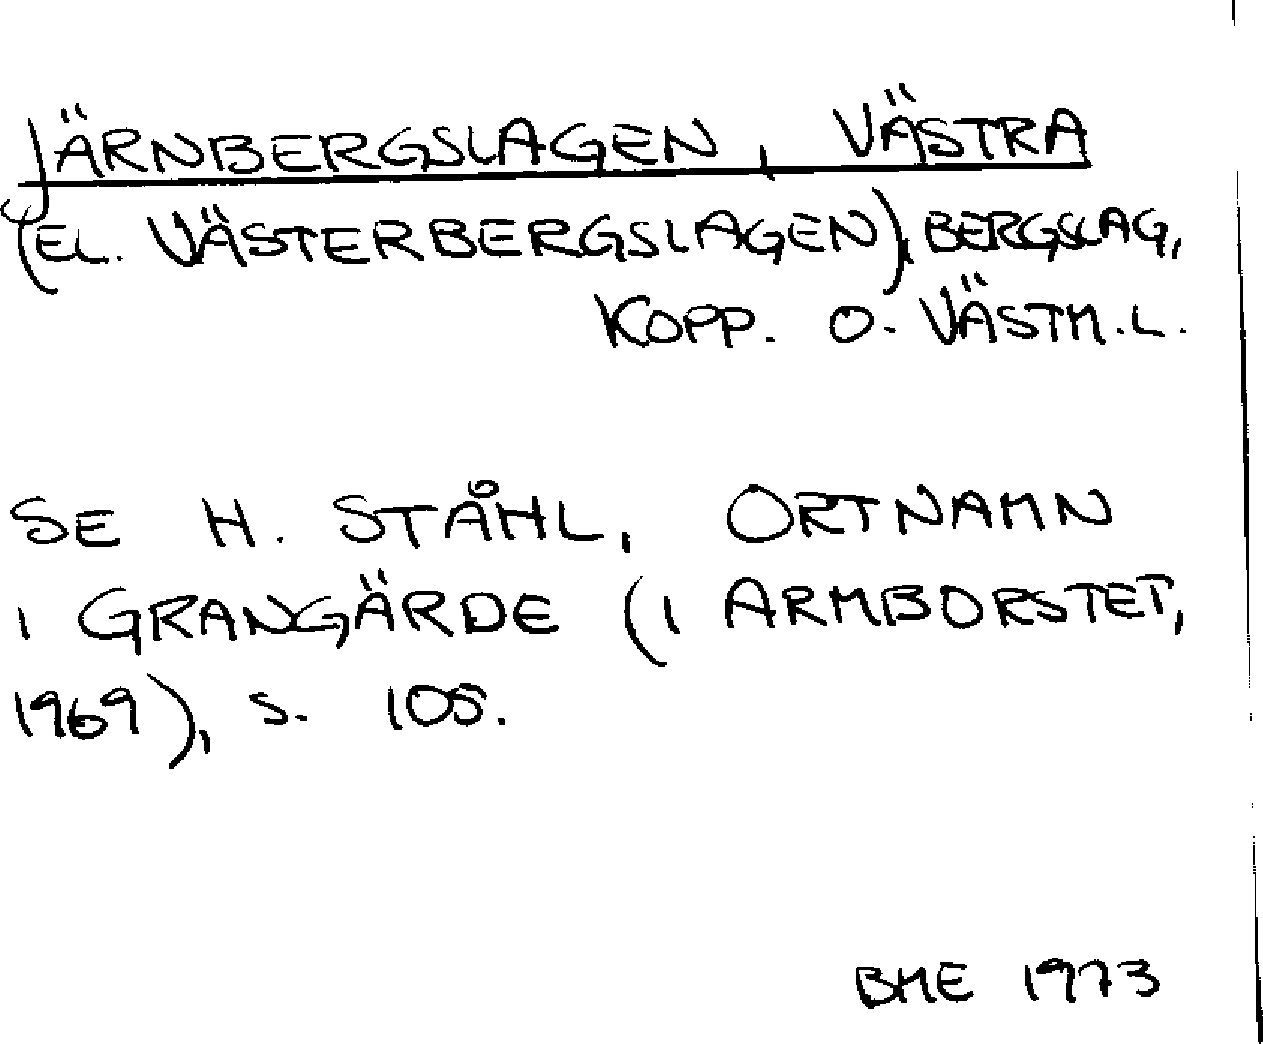 JÄRNBERGSLAGEN, VÄSTRA
(EL. VÄSTERBERGSLAGEN), BERGSLAG,
KOPP. O. VÄSTM.L.
SE H. STÅHL, ORTNAMN
I GRANGÄRDE (I ARMBORSTET,
1969), S. 105.
BME 1973